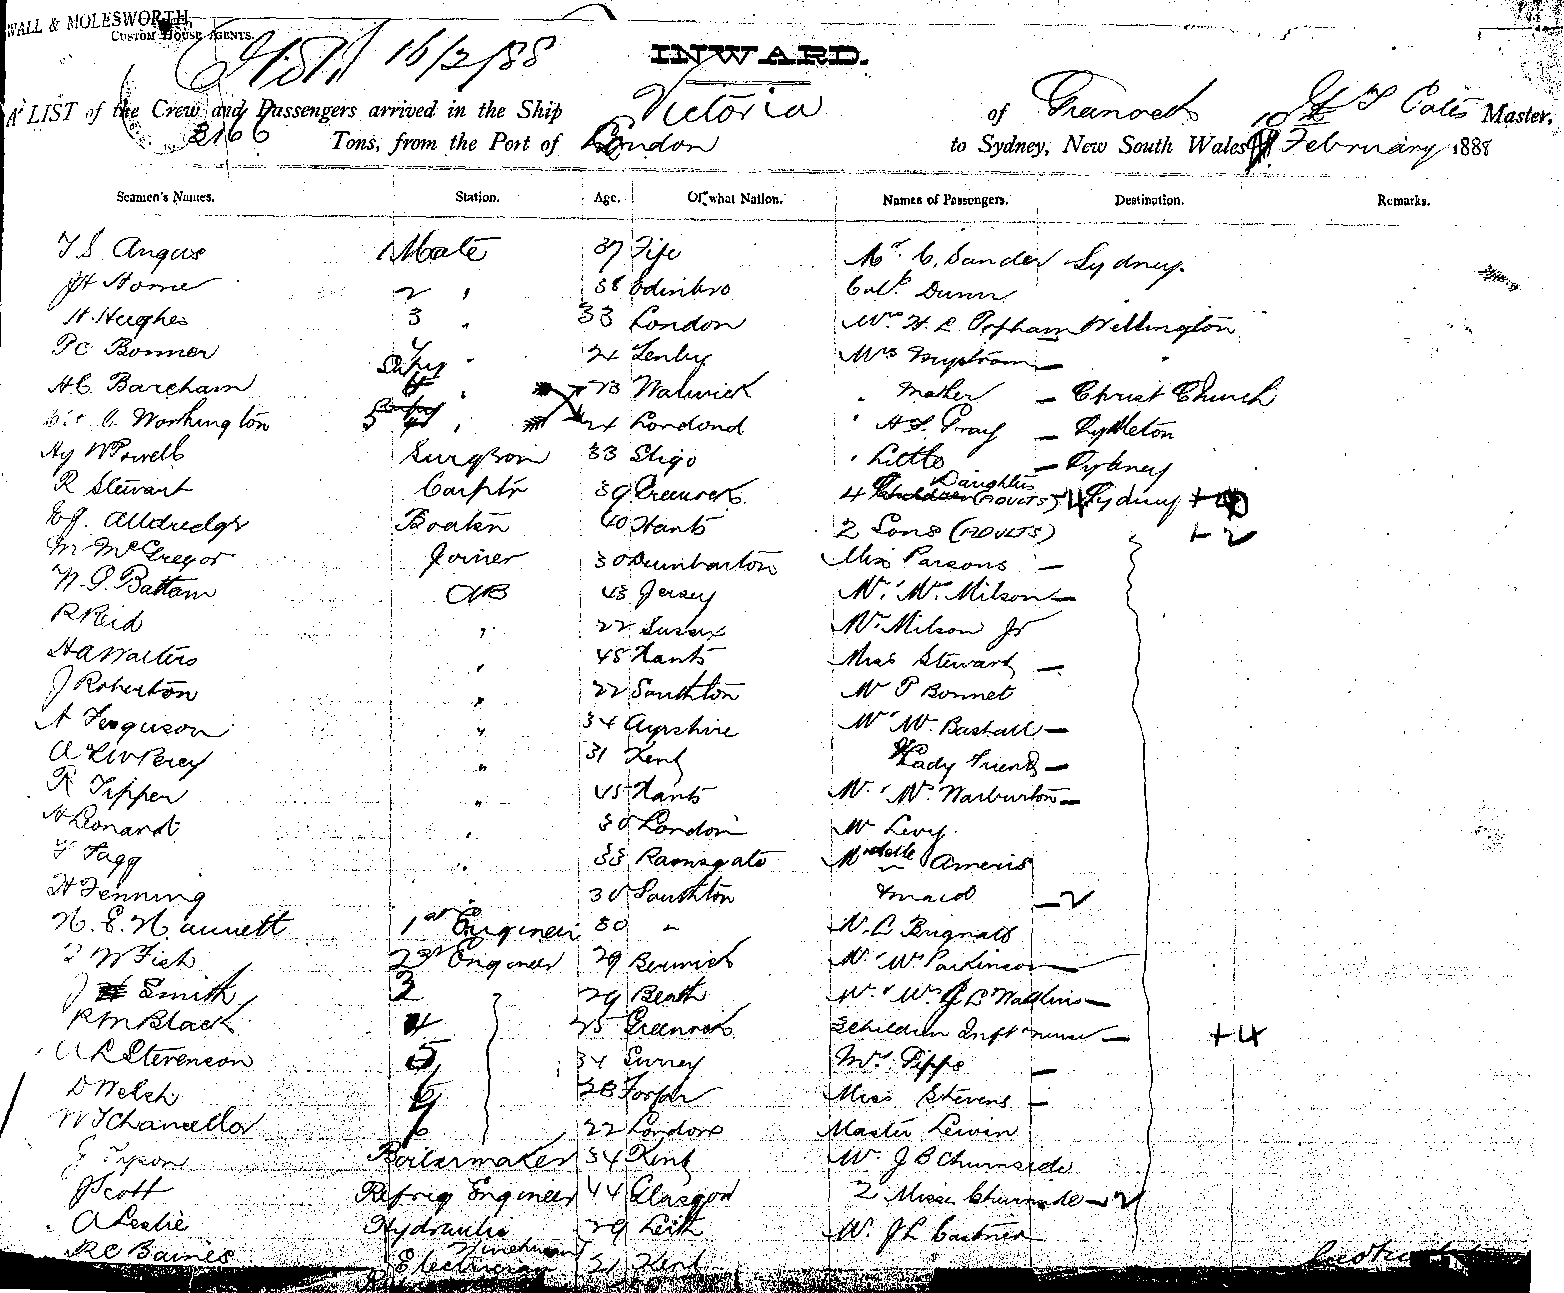 WALL & MOLESWORTH,
CUSTOM HOUSE AGENTS.
16/2/88
INWARD.
A LIST of the Crew and Passengers arrived in the Ship Victoria of Greenock Master,
3166 Tons, from the Port of London to Sydney, New South Wales February 1888
Seamen's Names. Station. Age. Of what Nation. Names of Passengers. Destination. Remarks.
T S Angus 1 Mate 37 Fife Mr C. Sander Sydney.
JH Horne 2 " 38 Edinbro Coll. Dunn
H. Hughes 3 " 33 London Mr H L Popham Wellington
P C Bonner 4 " 24 Tenby Mrs Nystrom — "
H C Barcham " 23 Warwick " Mather — Christ Church
Worthington 5 " 24 London " H S Gray — Lyttleton
Hy W Powell Surgeon 33 Sligo " Little — Sydney
R Stewart Carptr 39 Greenock 4 Daughters (ADULTS) 4 Sydney
W J. Alldridge Boatsn 40 Hants 2 Sons (ADULTS) + 2
M McGregor Joiner 30 Dumbarton Miss Parsons —
W. G. Battam AB 43 Jersey Mr & Mrs Milson —
R Reid " 22 Sussex Mr Milson Jr
H A Walters " 48 Hants Miss Stewart —
J Roberton " 22 Southton Mr P Bonnet
A Ferguson " 34 Ayrshire Mr & Mrs Bashall —
Percy " 31 Kent Lady Friend —
R Tipper " 45 Hants Mr & Mrs Warburton —
H Leonardt " 30 London Mr Levy.
T Fagg " 33 Ramsgate Mdelle Ameris
H Fenning " 30 Southton & maid — 2
N. E. Hannett 1st Engineer 30 " Mr L Brignall
W Fish 2nd Engineer 29 Berwick Mr & Mrs Parkinson —
J Smith 3 29 Beath Mr & Mrs J L Watkins —
R M Black 4 25 Greenock 3 children Inft & nurse — + 4
A R Stevenson 5 34 Surrey Mrs Pipps —
D Welsh 6 28 Forfar Miss Stevens —
W T Chancellor 22 London Master Lewin
J Tyson Boilermaker 34 Kent Mr J B Churnside
J Scott Refrig Engineer 44 Glasgow 2 Misses Churnside — 2
A Leslie Hydraulic 29 Leith Mr J L Castner
R C Baines Electrician 21 Kent